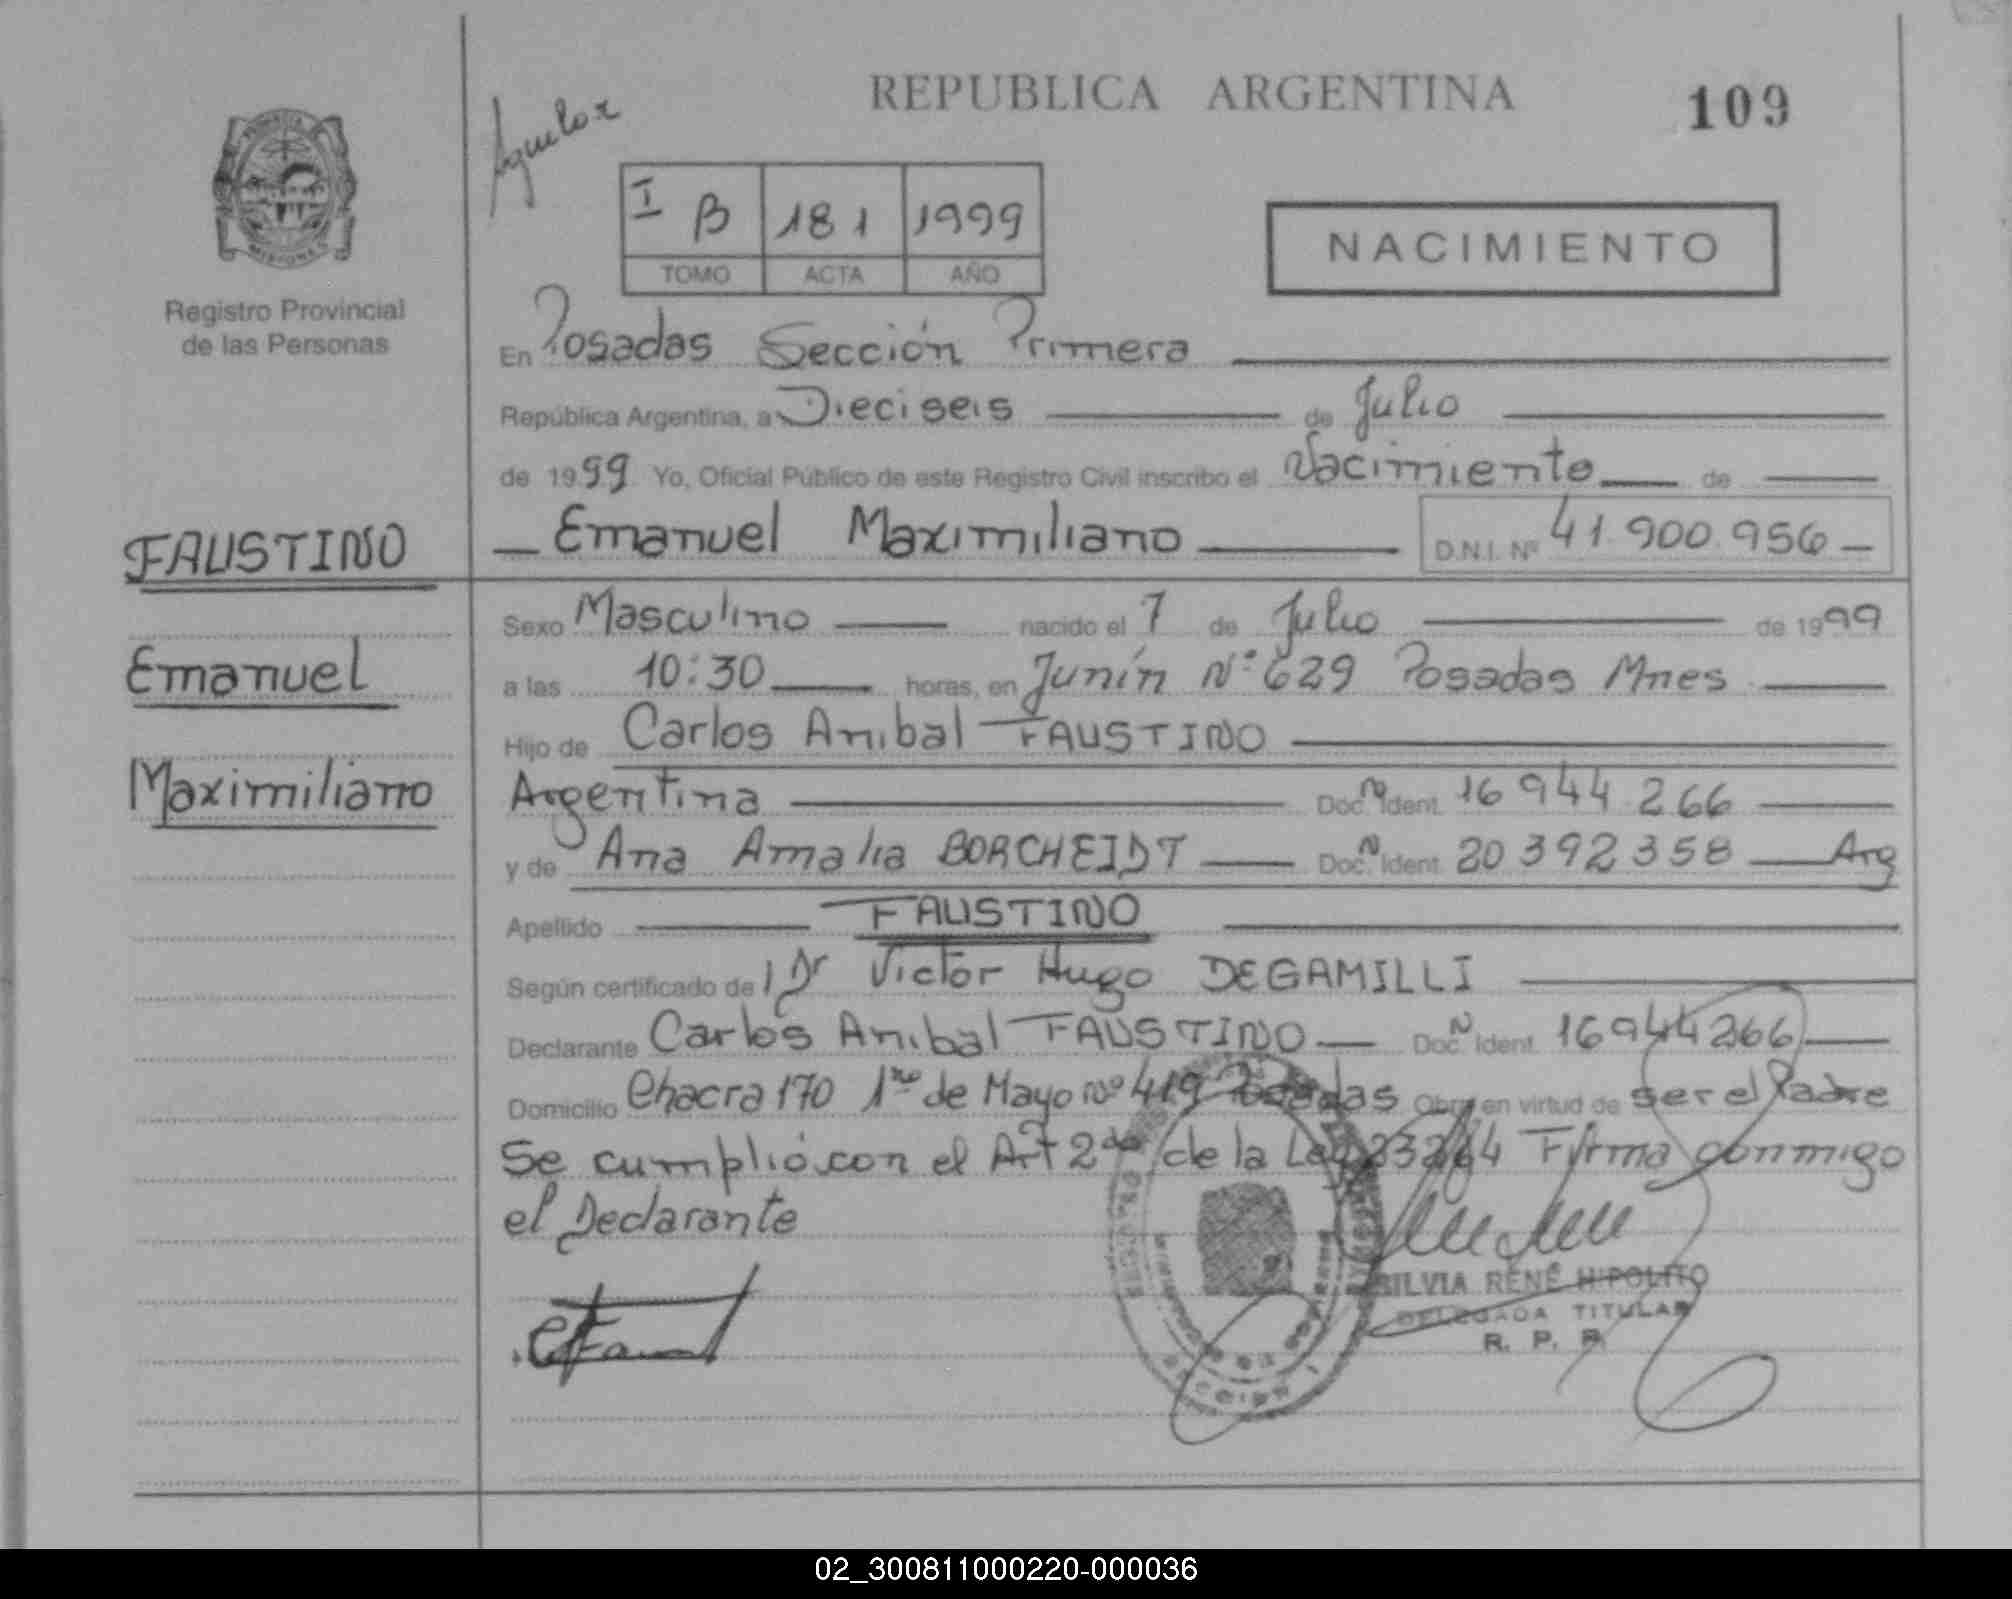 REPUBLICA ARGENTINA
109
Aguilar
PROVINCIA
MISIONES
Registro Provincial
de las Personas
I B 181 1999
TOMO ACTA AÑO
NACIMIENTO
En Posadas Sección Primera
República Argentina, a Dieciseis de Julio
de 1999 Yo, Oficial Público de este Registro Civil inscribo el Nacimiento de
Emanuel Maximiliano D.N.I. Nº 41.900.956
FAUSTINO
Emanuel
Maximiliano
Sexo Masculino nacido el 7 de Julio de 1999
a las 10:30 horas, en Junín Nº 629 Posadas Mnes
Hijo de Carlos Anibal FAUSTINO
Argentina Doc. N Ident. 16 944 266
y de Ana Amalia BORCHEIDT Doc. N Ident. 20 392 358 Arg
Apellido FAUSTINO
Según certificado de l Dr Victor Hugo DEGAMILLI
Declarante Carlos Anibal FAUSTINO Doc. N Ident. 16944266
Domicilio Chacra 170 1ro de Mayo nº 419 Posadas Obra en virtud de ser el Padre
Se cumplió con el Art 2do de la Ley 23264 Firma conmigo
el Declarante
SILVIA RENÉ HIPOLITO
DELEGADA TITULAR
R. P. P.
SECCION I
02_300811000220-000036